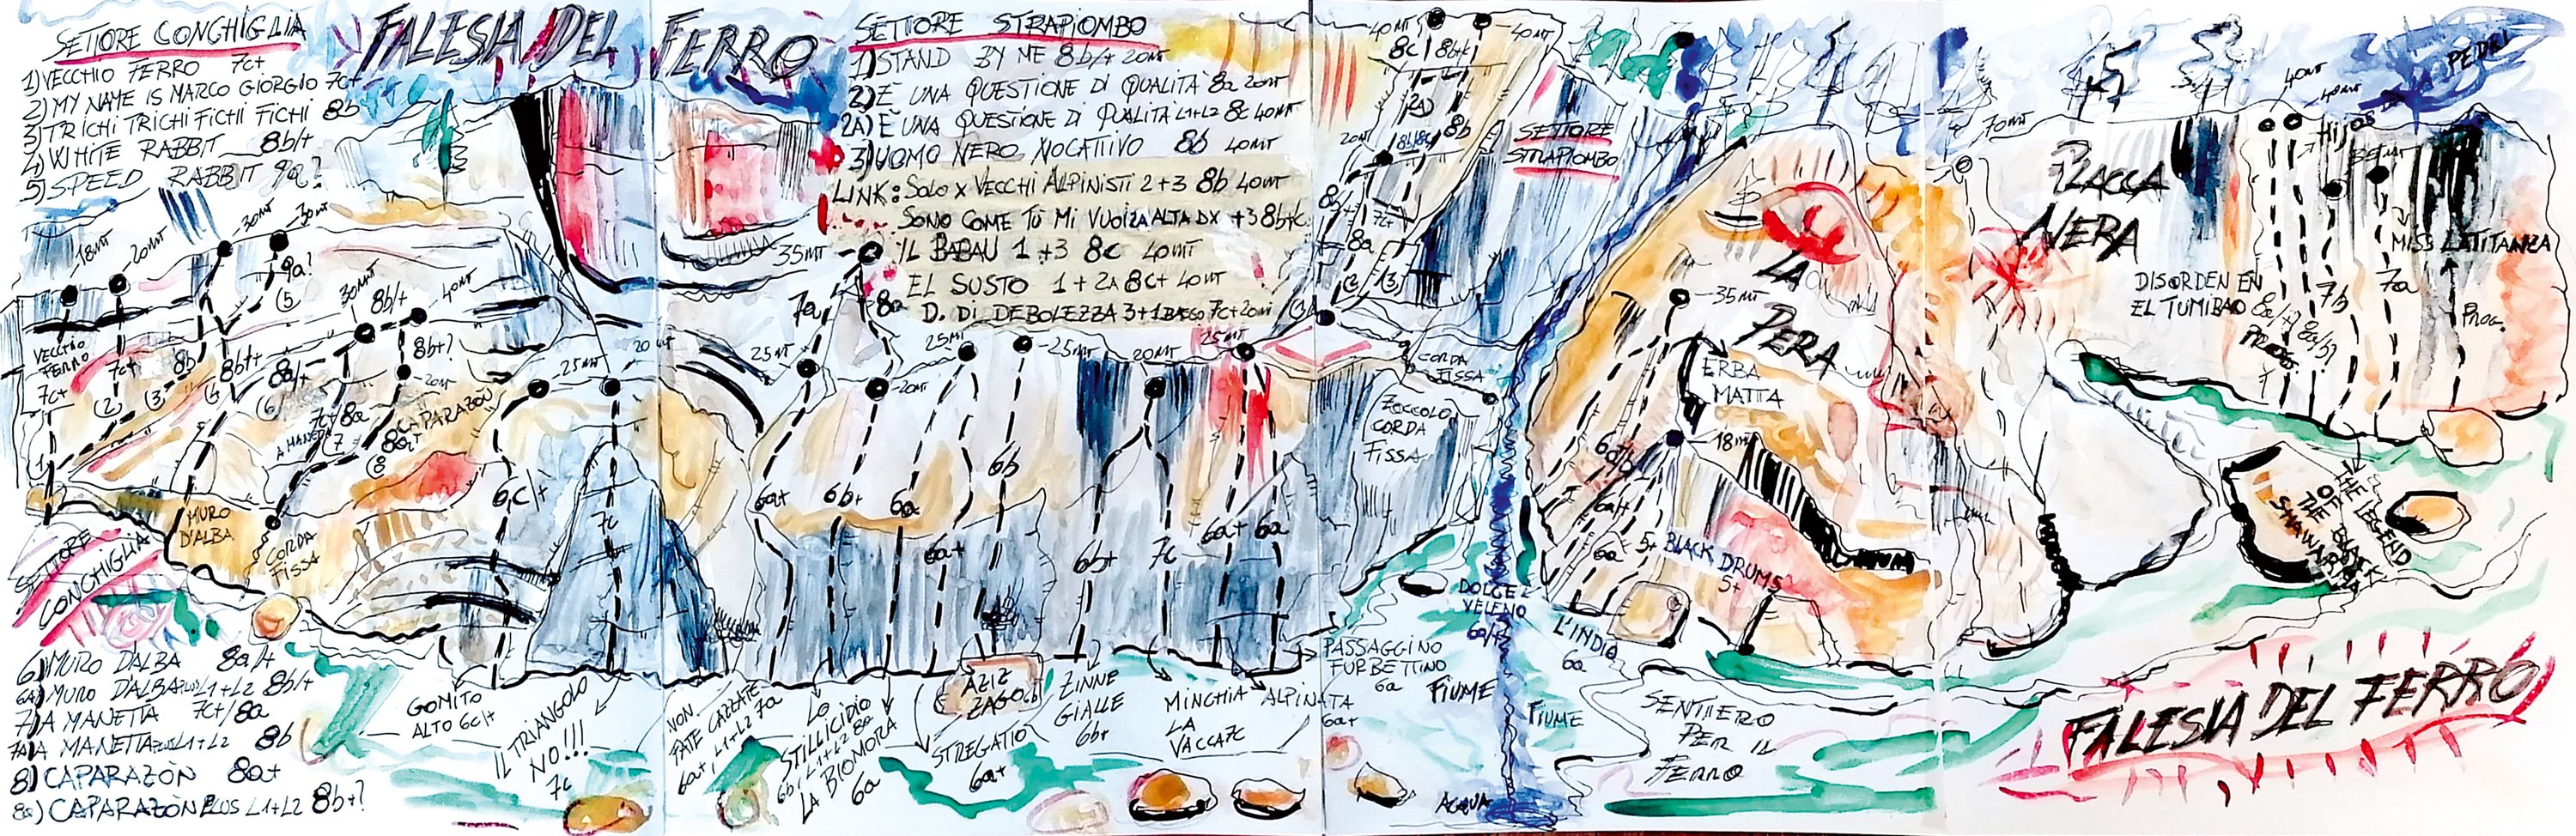 SETTORE CONCHIGLIA
1) VECCHIO FERRO 7c+
2) MY NAME IS MARCO GIORGIO 7c+
3) TRICHI TRICHI FICHI FICHI 8b
4) WHITE RABBIT 8b/+
5) SPEED RABBIT 9a?
FALESIA DEL FERRO
SETTORE STRAPIOMBO
1) STAND BY ME 8b/+ 20mt
2) È UNA QUESTIONE DI QUALITÀ 8a 20mt
2A) È UNA QUESTIONE DI QUALITÀ L1+L2 8c 40mt
3) UOMO NERO NOCATTIVO 8b 40mt
LINK: SOLO X VECCHI ALPINISTI 2+3 8b 40mt
SONO COME TU MI VUOI 2A ALTA DX +3 8b+/c
IL BABAU 1+3 8c 40mt
EL SUSTO 1+2A 8c+ 40mt
D. DI DEBOLEZZA 3+1 BASSO 7c+ 20mt
18mt
20mt
30mt
30mt
9a?
5
30mt
8b/+
40mt
VECCHIO
FERRO
7c+
7c+
8b
8b/+
8a/+
8b+?
20mt
1
2
3
4
6
7c+/8a
A MANETTA
7
CAPARAZÓN
8a+
8
MURO
D'ALBA
CORDA
FISSA
SETTORE
CONCHIGLIA
25mt
20mt
6c/+
7c
35mt
7a
8a
25mt
20mt
25mt
25mt
20mt
25mt
6a+
6b+
6a
6a+
6b
6b+
7c
6a+
6a
40mt
8c
8b+/c
40mt
2A
8b/c
8b
20mt
8b/+
7c+
8a
1
2
3
SETTORE
STRAPIOMBO
CORDA
FISSA
ZOCCOLO
CORDA
FISSA
LA
PERA
35mt
ERBA
MATTA
18mt
6a/b
6a/+
6a
5+
BLACK DRUMS
5+
70mt
PLACCA
NERA
40mt
40mt
HIJOS DE LA PEDRI
35mt
MISS LATITANZA
DISORDEN EN
EL TUMIBAO 8a/+?
8a/b?
PROG.
7b
7a
PROG.
THE LEGEND
OF THE BLACK
SHAWARMA
6) MURO D'ALBA 8a/+
6A) MURO D'ALBA PLUS L1+L2 8b/+
7) A MANETTA 7c+/8a
7A) A MANETTA PLUS L1+L2 8b
8) CAPARAZÒN 8a+
8A) CAPARAZÒN PLUS L1+L2 8b+?
GOMITO
ALTO 6c/+
IL TRIANGOLO
NO!!!
7c
NON
FATE CAZZATE
6a+, L1+L2 7a
LO
STILLICIDIO
6b+, L1+L2 8a
LA BIONORA
6a
AZIZ
ZAGO!
STREGATIO
6a+
ZINNE
GIALLE
6b+
MINCHIA
LA
VACCA 7c
ALPINATA
6a+
PASSAGGINO
FURBETTINO
6a
DOLCE
VELENO
6a/+
FIUME
FIUME
ACQUA
L'INDIO
6a
SENTIERO
PER IL
FERRO
FALESIA DEL FERRO